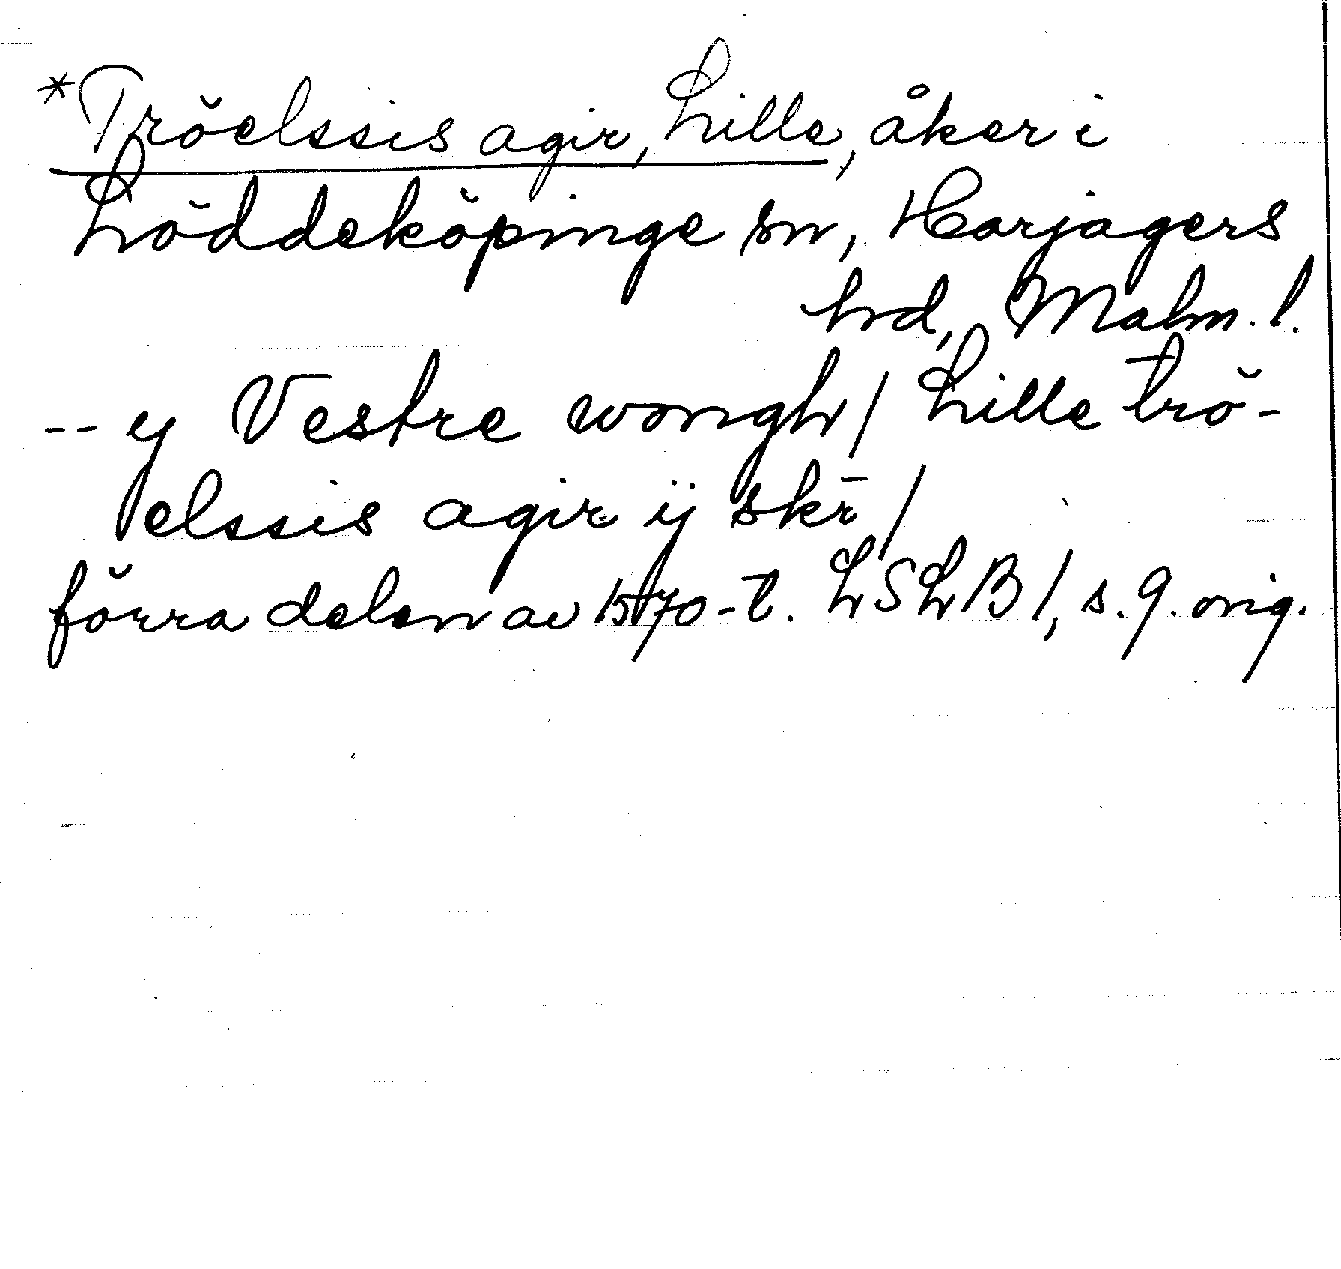 *Tröelssis agir, Lille, åker i
Löddeköpinge sn, Harjagers
hrd, Malm. l.
-- y Vestre wongh / Lille trö-
elssis agir ij skr̄ /
förra delen av 1570-t. LSLB 1, s. 9. orig.